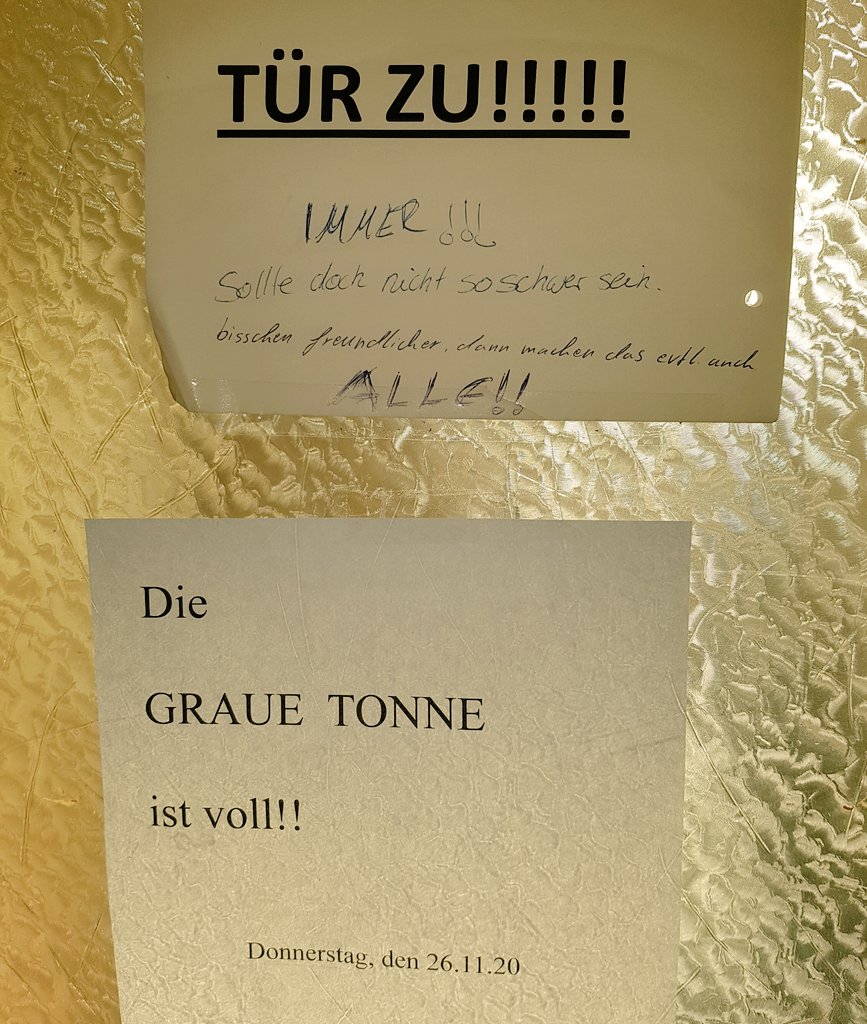 TÜR ZU!!!!!
IMMER!!!
Sollte doch nicht so schwer sein.
bisschen freundlicher, dann machen das evtl. auch
ALLE!!
Die
GRAUE TONNE
ist voll!!
Donnerstag, den 26.11.20